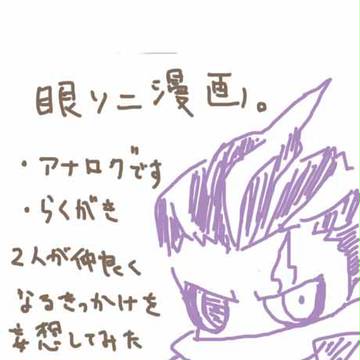 眼ソニ漫画。
・アナログです
・らくがき
2人が仲良く
なるきっかけを
妄想してみた